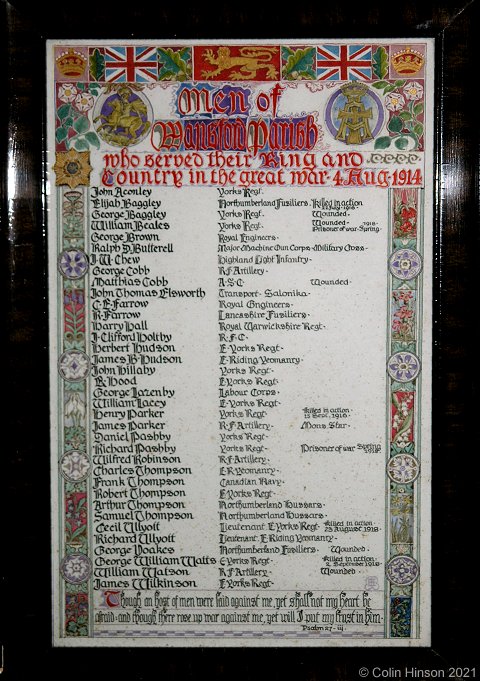 Men of
Wansford Parish
who served their King and
Country in the great war · 4 Aug · 1914
John Aconley Yorks Regt.
Elijah Baggley Northumberland Fusiliers · Killed in action
George Baggley Yorks Regt. Wounded ·
William Beales Yorks Regt. Wounded · 1918 · Prisoner of war · Spring
George Brown Royal Engineers ·
Ralph S Butterell Major Machine Gun Corps · Military Cross ·
J · W · Chew Highland Light Infantry ·
George Cobb R · F · Artillery ·
Matthias Cobb A · S · C Wounded ·
John Thomas Elsworth Transport · Salonika ·
C · E · Farrow Royal Engineers ·
R · Farrow Lancashire Fusiliers ·
Harry Hall Royal Warwickshire Regt ·
J · Clifford Holtby R · F · C ·
Herbert Hudson E · Yorks Regt ·
James B · Hudson E · Riding Yeomanry ·
John Hillaby Yorks Regt ·
R · Hood E Yorks Regt ·
George Lazenby Labour Corps ·
William Lacey E · Yorks Regt ·
Henry Parker Yorks Regt Killed in action · 15 Sept. 1916 ·
James Parker R · F · Artillery · Mons Star ·
Daniel Pashby Yorks Regt ·
Richard Pashby Yorks Regt · Prisoner of war Spring 1918
Wilfred Robinson R · F · Artillery ·
Charles Thompson E · R · Yeomanry ·
Frank Thompson Canadian Navy ·
Robert Thompson E Yorks Regt ·
Arthur Thompson Northumberland Hussars ·
Samuel Thompson Northumberland Hussars ·
Cecil Ullyott Lieutenant E Yorks Regt · Killed in action · 23 August 1918 ·
Richard Ullyott Lieutenant E · Riding Yeomanry ·
George Voakes Northumberland Fusiliers · Wounded ·
George William Watts E Yorks Regt · Killed in action · 2 September 1918 ·
William Watson R · F · Artillery · Wounded ·
James Wilkinson E Yorks Regt ·
Though an host of men were laid against me, yet shall not my heart be
afraid · and though there rose up war against me, yet will I put my trust in him ·
Psalm 27 · iii ·
© Colin Hinson 2021